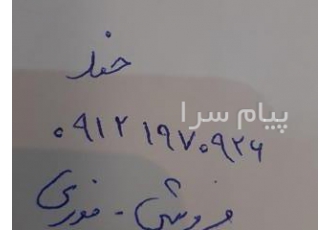 پیام سرا
۰۹۱۲ ۱۹۷۰۹۲۶
فروشی - فوری